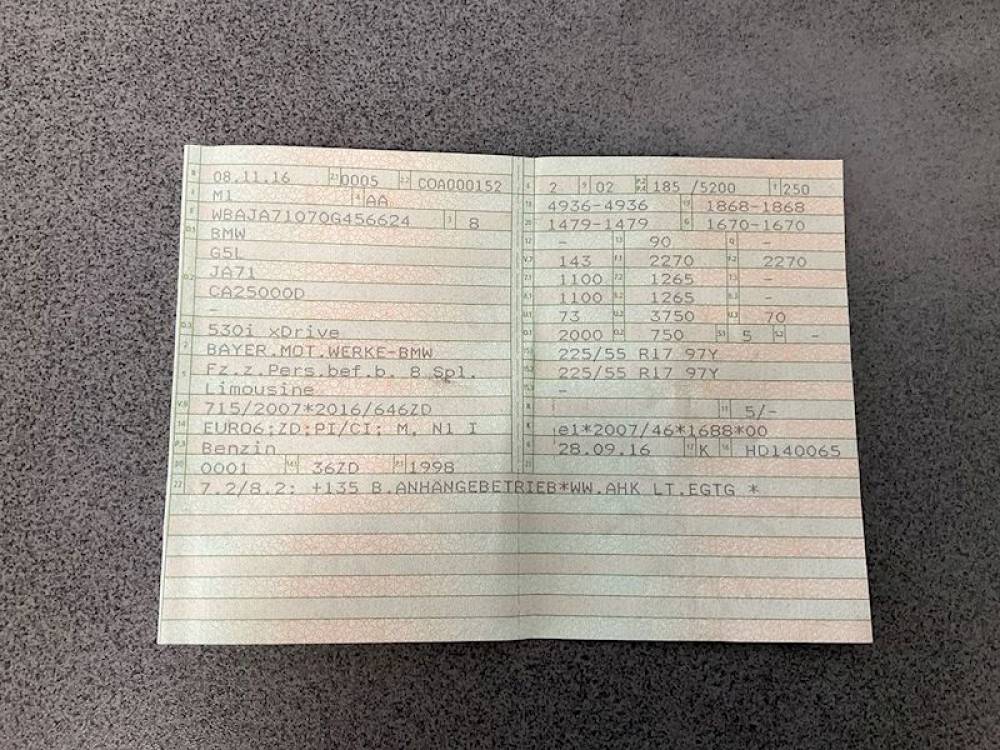 08.11.16 0005 COA000152
M1 AA
WBAJA71070G456624 8
BMW
G5L
JA71
CA25000D
-
530i xDrive
BAYER.MOT.WERKE-BMW
Fz.z.Pers.bef.b. 8 Spl.
Limousine
715/2007*2016/646ZD
EURO6;ZD;PI/CI; M, N1 I
Benzin
0001 36ZD 1998
2 02 185 /5200 250
4936-4936 1868-1868
1479-1479 1670-1670
- 90 -
143 2270 2270
1100 1265 -
1100 1265 -
73 3750 70
2000 750 5 -
225/55 R17 97Y
225/55 R17 97Y
-
5/-
e1*2007/46*1688*00
28.09.16 K HD140065
7.2/8.2: +135 B.ANHANGEBETRIEB*WW.AHK LT.EGTG *